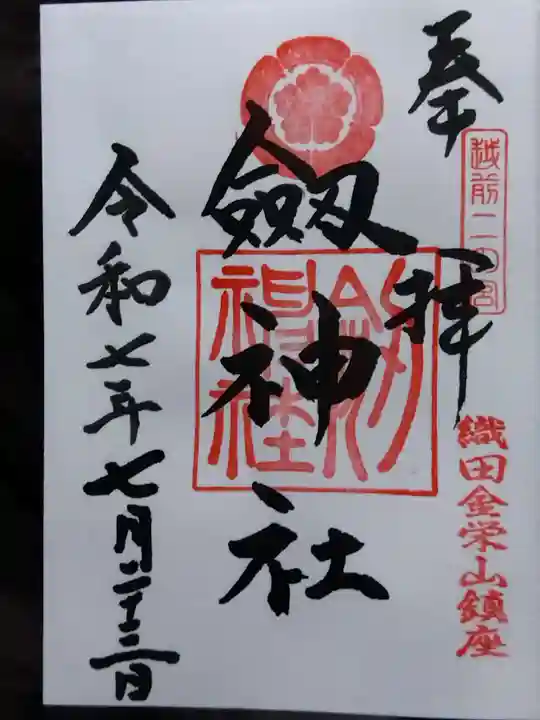 奉拝
越前二の宮
織田金栄山鎮座
劔神社
劔神社
令和七年七月二十二日